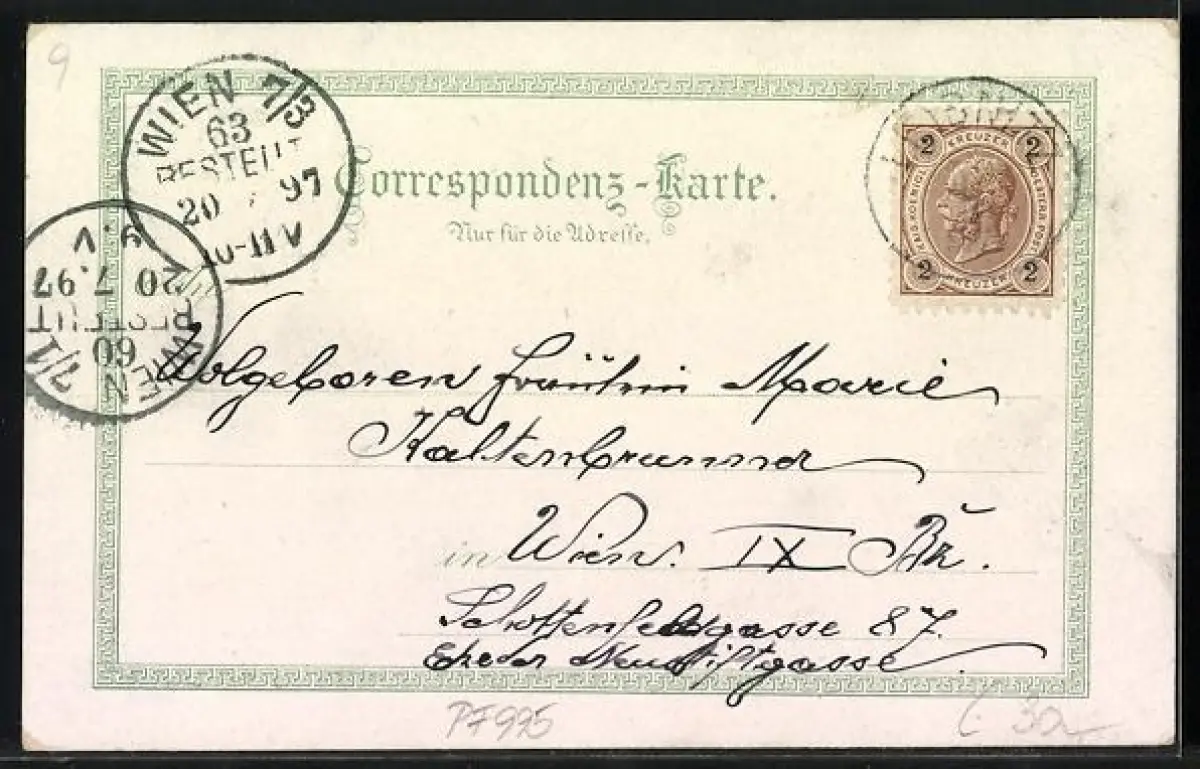 9
WIEN 7/3
63
BESTELLT
20 7 97
10-11 V
WIEN 7/1
60
BESTELLT
20 7.97
9.V
Correspondenz-Karte.
Nur für die Adresse.
2 KREUZER 2
KAIS. KOENIGL. OESTERR. POST
2 KREUZER 2
Wolgeboren Fräulein Marie
Kaltenbrunner
in Wien. IX Bz.
Schottenfeldgasse 87.
Ecke der Neustiftgasse.
PF995
30,-